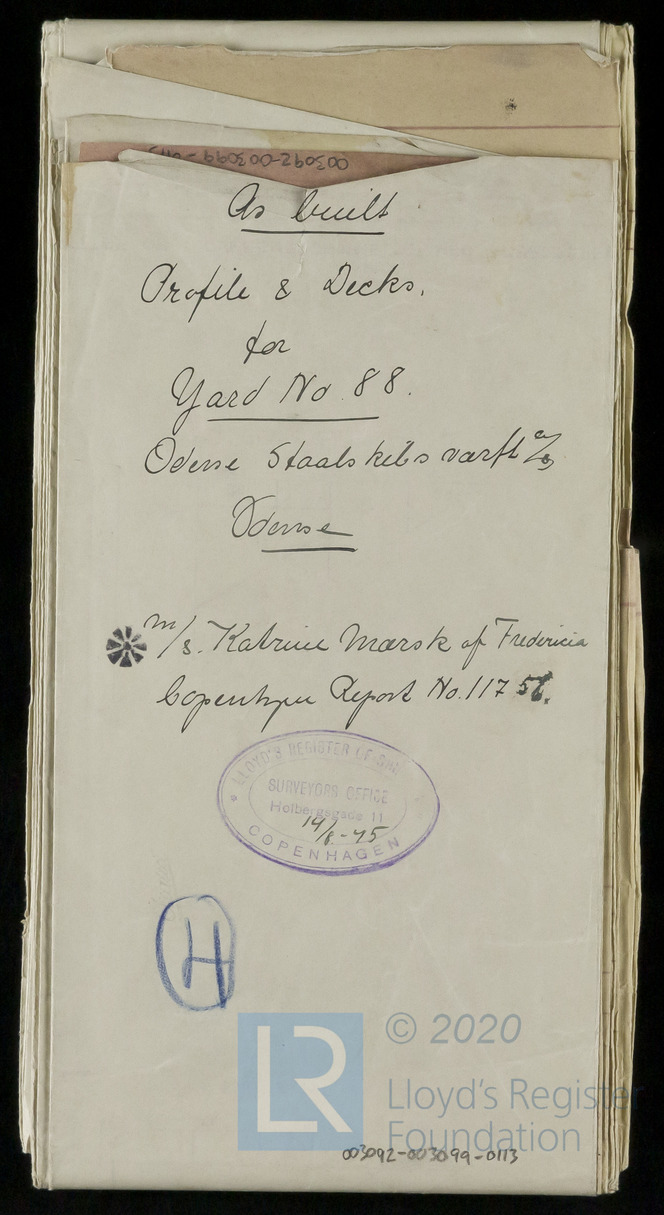 003092-003099-0113
As built
Profile & Decks.
for
Yard No. 88.
Odense Staalskibsværft A/S
Odense
M/S. Katrine Mærsk of Fredericia
Copenhagen Report No. 11756.
LLOYD'S REGISTER OF SHIPPING
SURVEYORS OFFICE
Holbergsgade 11
14/8-45
COPENHAGEN
H
LR
© 2020
Lloyd's Register
Foundation
003092-003099-0113